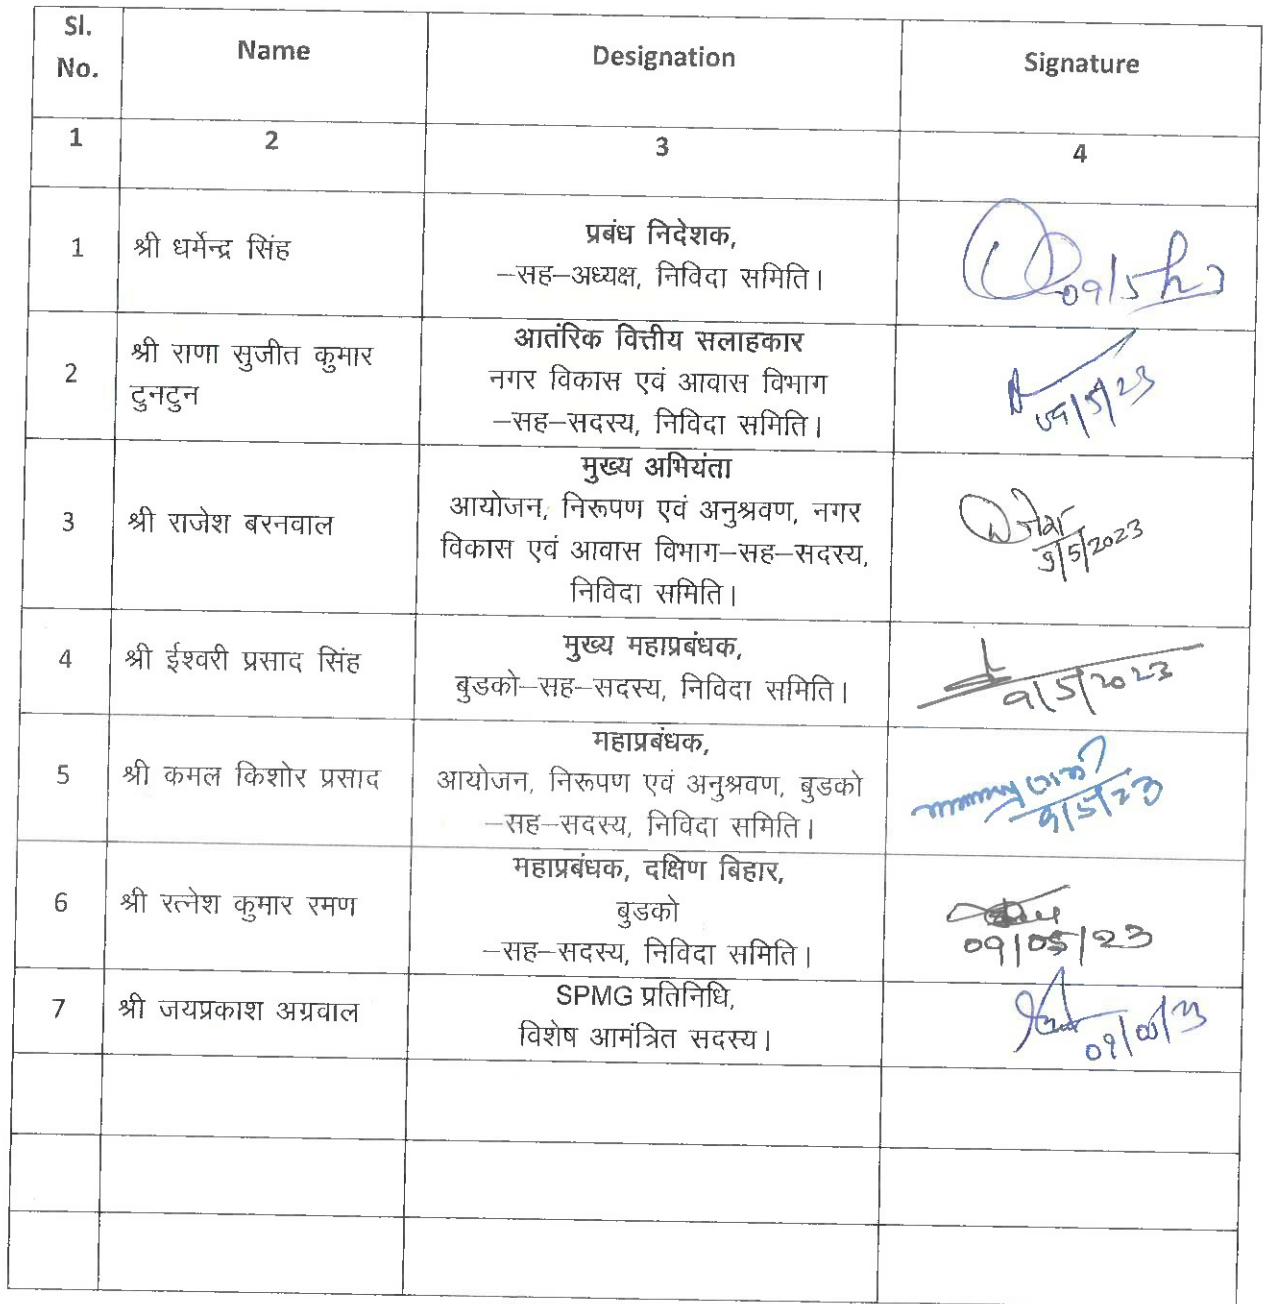 Sl.
No.
Name
Designation
Signature
1
2
3
4
1
श्री धर्मेन्द्र सिंह
प्रबंध निदेशक,
–सह–अध्यक्ष, निविदा समिति।
09/5/23
2
श्री राणा सुजीत कुमार
टुनटुन
आतंरिक वित्तीय सलाहकार
नगर विकास एवं आवास विभाग
–सह–सदस्य, निविदा समिति।
09/5/23
3
श्री राजेश बरनवाल
मुख्य अभियंता
आयोजन, निरूपण एवं अनुश्रवण, नगर
विकास एवं आवास विभाग–सह–सदस्य,
निविदा समिति।
9/5/2023
4
श्री ईश्वरी प्रसाद सिंह
मुख्य महाप्रबंधक,
बुडको–सह–सदस्य, निविदा समिति।
9/5/2023
5
श्री कमल किशोर प्रसाद
महाप्रबंधक,
आयोजन, निरूपण एवं अनुश्रवण, बुडको
–सह–सदस्य, निविदा समिति।
9/5/23
6
श्री रत्नेश कुमार रमण
महाप्रबंधक, दक्षिण बिहार,
बुडको
–सह–सदस्य, निविदा समिति।
09/05/23
7
श्री जयप्रकाश अग्रवाल
SPMG प्रतिनिधि,
विशेष आमंत्रित सदस्य।